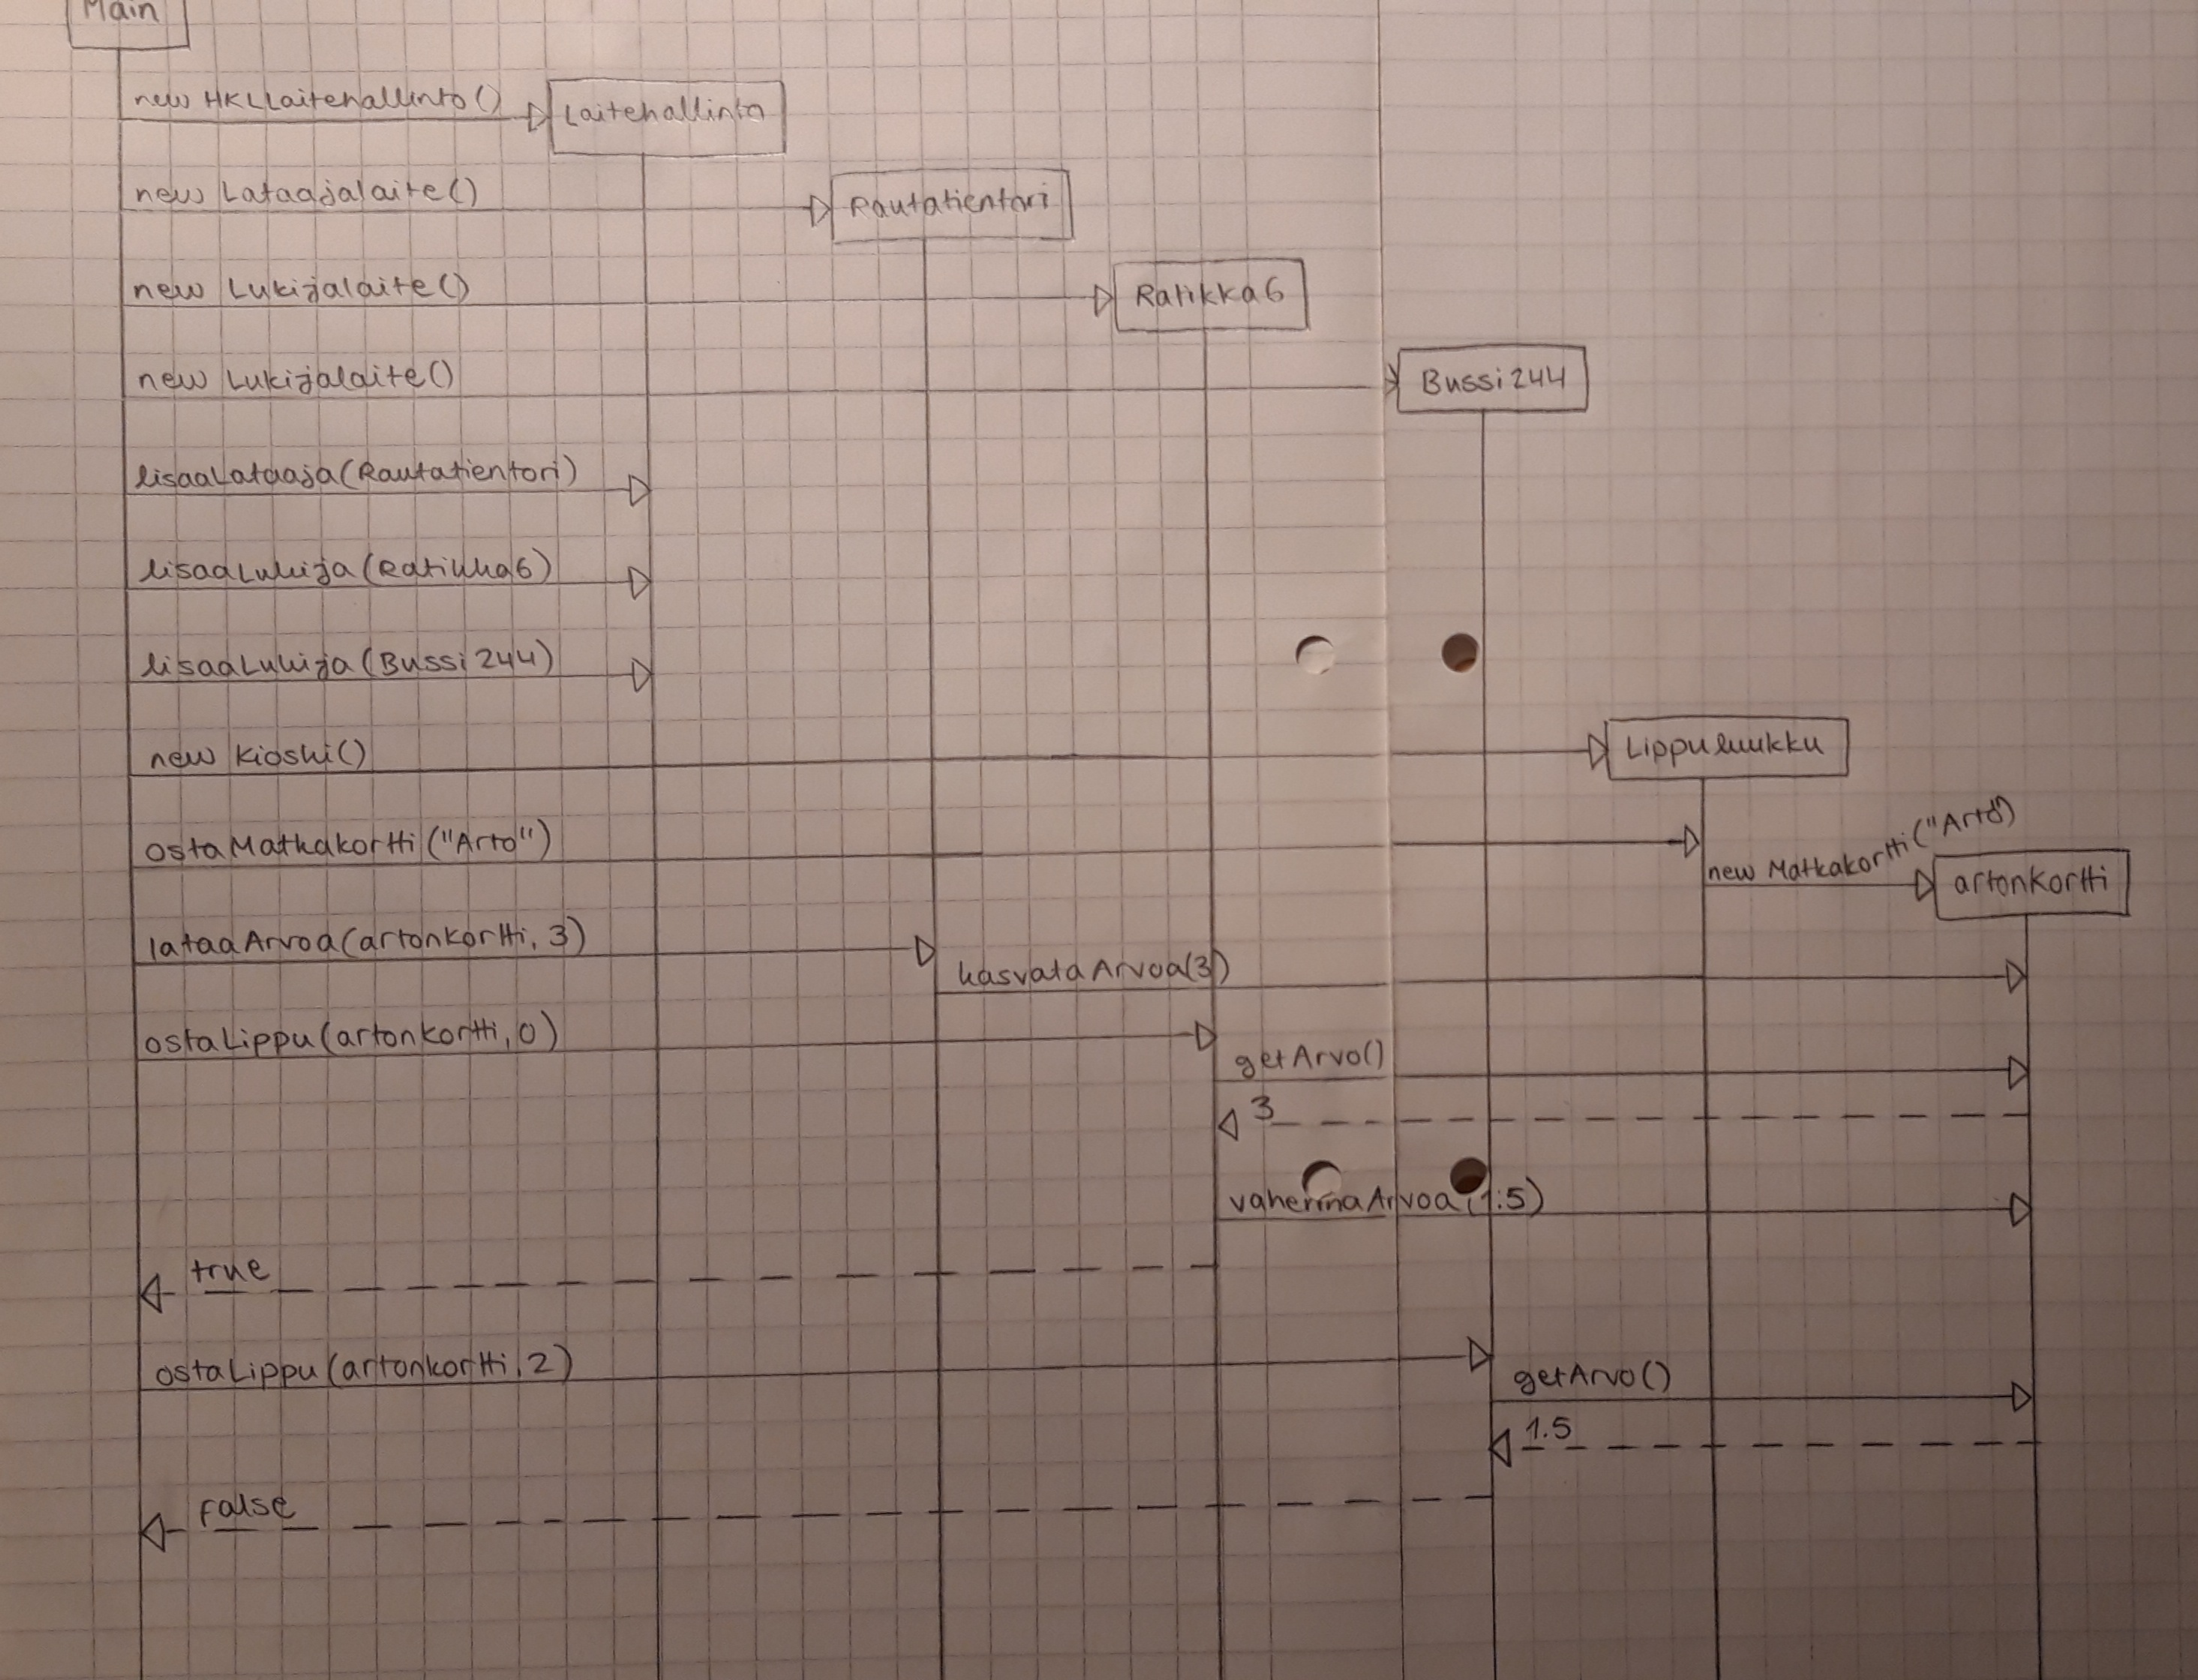 Main
new HKLLaitehallinto()
Laitehallinto
new Lataajalaite()
Rautatientori
new Lukijalaite()
Ratikka6
new Lukijalaite()
Bussi244
lisaaLataaja(Rautatientori)
lisaaLukija(Ratikka6)
lisaaLukija(Bussi244)
new Kioski()
Lippuluukku
ostaMatkakortti("Arto")
new Matkakortti("Arto")
artonKortti
lataaArvoa(artonKortti, 3)
kasvataArvoa(3)
ostaLippu(artonKortti, 0)
getArvo()
3
vahennaArvoa(1.5)
true
ostaLippu(artonKortti, 2)
getArvo()
1.5
False